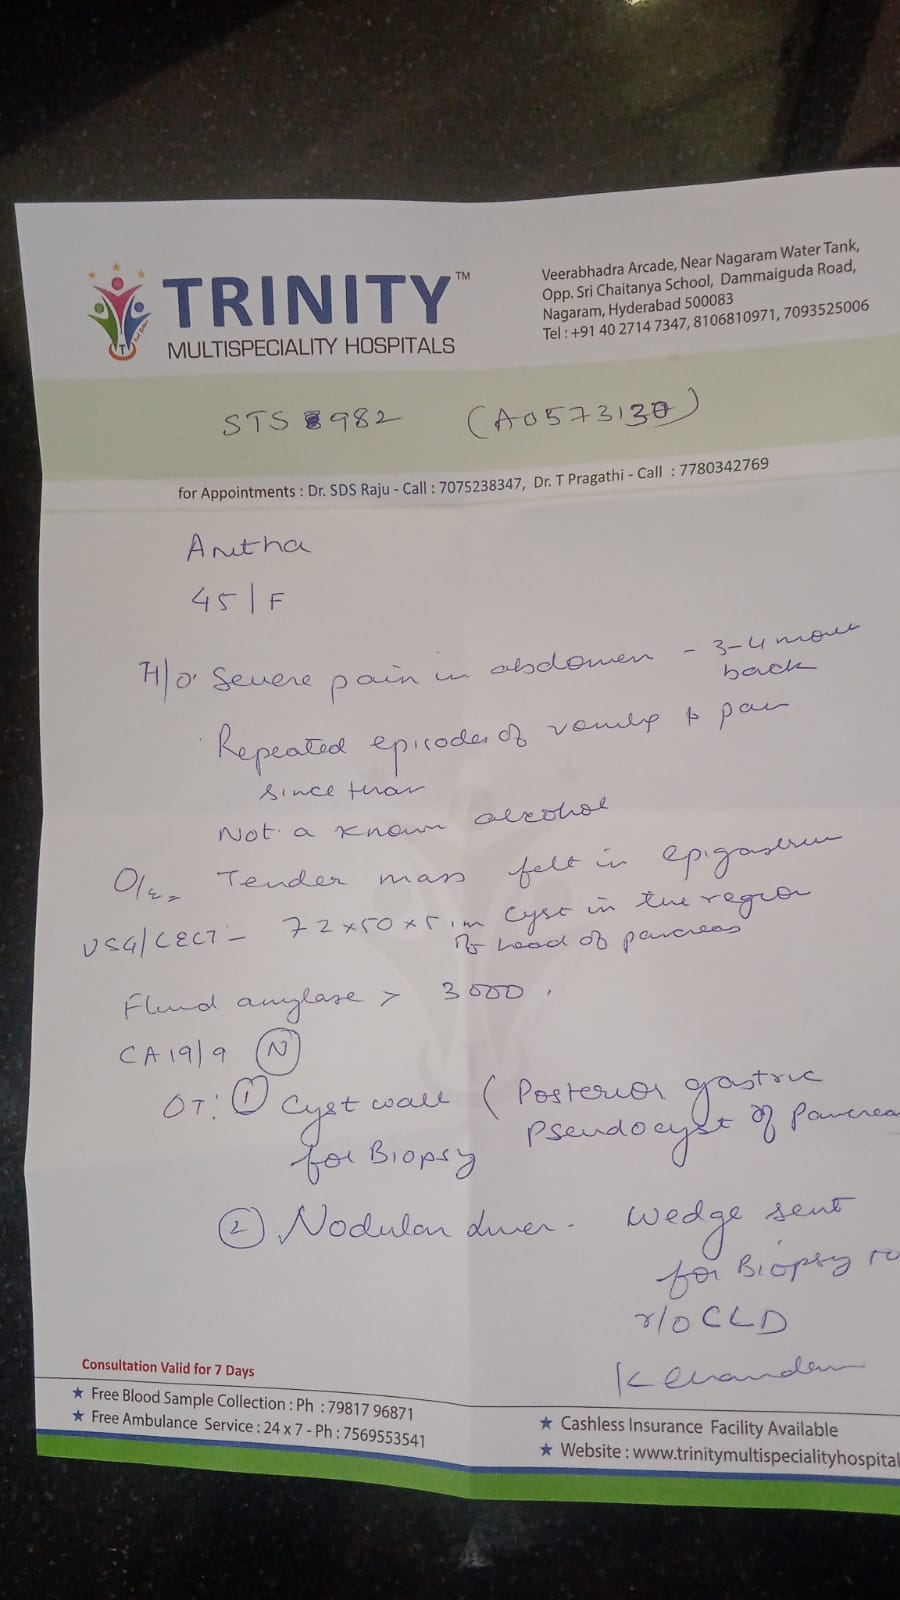 TRINITY™
MULTISPECIALITY HOSPITALS
Veerabhadra Arcade, Near Nagaram Water Tank,
Opp. Sri Chaitanya School, Dammaiguda Road,
Nagaram, Hyderabad 500083
Tel : +91 40 2714 7347, 8106810971, 7093525006
STS 982 (A0573130)
for Appointments : Dr. SDS Raju - Call : 7075238347, Dr. T Pragathi - Call : 7780342769
Anitha
45/F
H/o Severe pain in abdomen - 3-4
back
Repeated episodes of pain
since
Not a known alcohol
O/E - Tender mass felt in epigastrium
USG/CECT - 72x50x5 cyst in the region
head of pancreas
Fluid amylase > 3000
CA19/9 (N)
OT: ① Cyst wall (Posterior gastric
for Biopsy Pseudocyst of Pancrea
② Nodular liver. Wedge sent
for Biopsy to
r/o CLD
Consultation Valid for 7 Days
★ Free Blood Sample Collection : Ph : 79817 96871
★ Free Ambulance Service : 24 x 7 - Ph : 7569553541
★ Cashless Insurance Facility Available
★ Website : www.trinitymultispecialityhospital